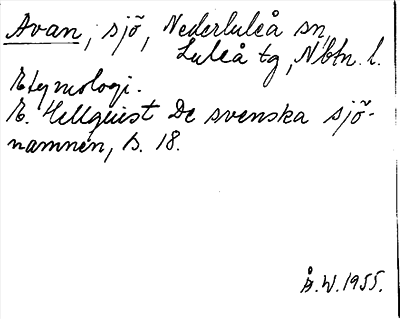 Avan, sjö, Nederluleå sn,
Luleå tg, Nbtn. l.
Etymologi.
E. Hellquist De svenska sjö-
namnen, s. 18.
Å.W. 1955.